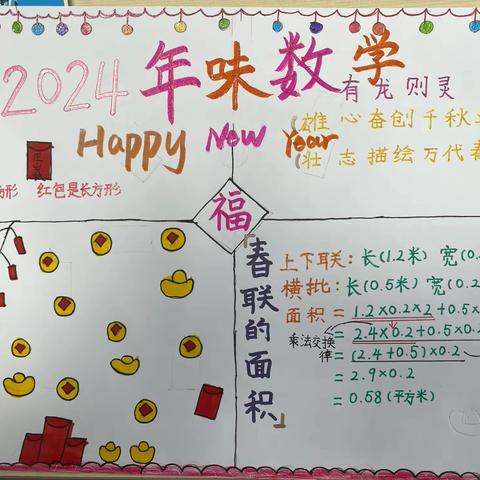 2024 年味数学
有龙则灵
Happy New Year
雄心奋创千秋
壮志描绘万代春
形 红包是长方形
福
「春联的面积」
上下联：长(1.2米) 宽(0.
横批：长(0.5米) 宽(0.2
面积 = 1.2×0.2×2+0.5×
= 2.4×0.2+0.5×0.
乘法交换律
= (2.4+0.5)×0.2
= 2.9×0.2
= 0.58 (平方米)